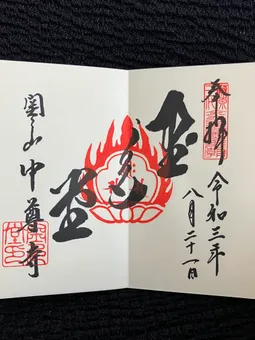 奉拝 令和三年
八月二十一日
金色堂
関山 中尊寺